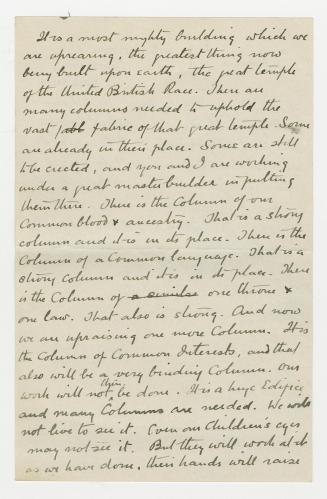 It is a most mighty building which we
are uprearing, the greatest thing now
being built upon earth, the great temple
of the United British Race. There are
many columns needed to uphold the
vast fabric of that great temple. Some
are already in their place. Some are still
to be erected, and you and I are working
under a great master builder in putting
them there. There is the Column of our
Common blood & ancestry. That is a strong
column and it is in its place. There is the
Column of a Common language. That is a
strong column and it is in its place. There
is the Column of a similar one throne &
one law. That also is strong. And now
we are upraising one more Column. It is
the Column of Common Interests, and that
also will be a very binding Column. Our
work will not then be done. It is a huge Edifice
and many Columns are needed. We will
not live to see it. Even our Children's eyes
may not see it. But they will work at it
as we have done, their hands will raise